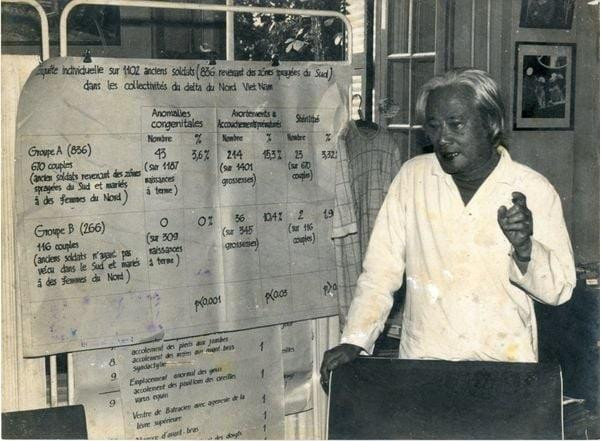 Enquête individuelle sur 1102 anciens soldats (836 revenant des zônes sprayées du Sud)
dans les collectivités du delta du Nord Viet Nam
Anomalies congénitales Avortements & Accouchements prématurés Stérilité
Nombre % Nombre % Nombre %
Groupe A (836) 43 3,6% 214 15,3% 23 3,32
670 couples (sur 1187 (sur 1401 (sur 670
(anciens soldats revenant des zônes naissances grossesses) couples)
sprayées du Sud et mariés à terme)
à des femmes du Nord)
Groupe B (266) 0 0% 36 10,4% 2 1,9
116 couples (sur 309 (sur 345 (sur 116
(anciens soldats n'ayant pas naissances grossesses) couples)
vécu dans le Sud et mariés à terme)
à des femmes du Nord)
p<0.001 p<0.03 p>0
accolement des pieds aux jambes
8 accolement des mains aux avant-bras 1
syndactylie
9 Emplacement anormal des yeux 1
accolement des pavillons des oreilles
9 varus equin 1
Ventre de Batracien avec agenesie de la 1
lèvre supérieure
d'avant-bras 1
des doigts